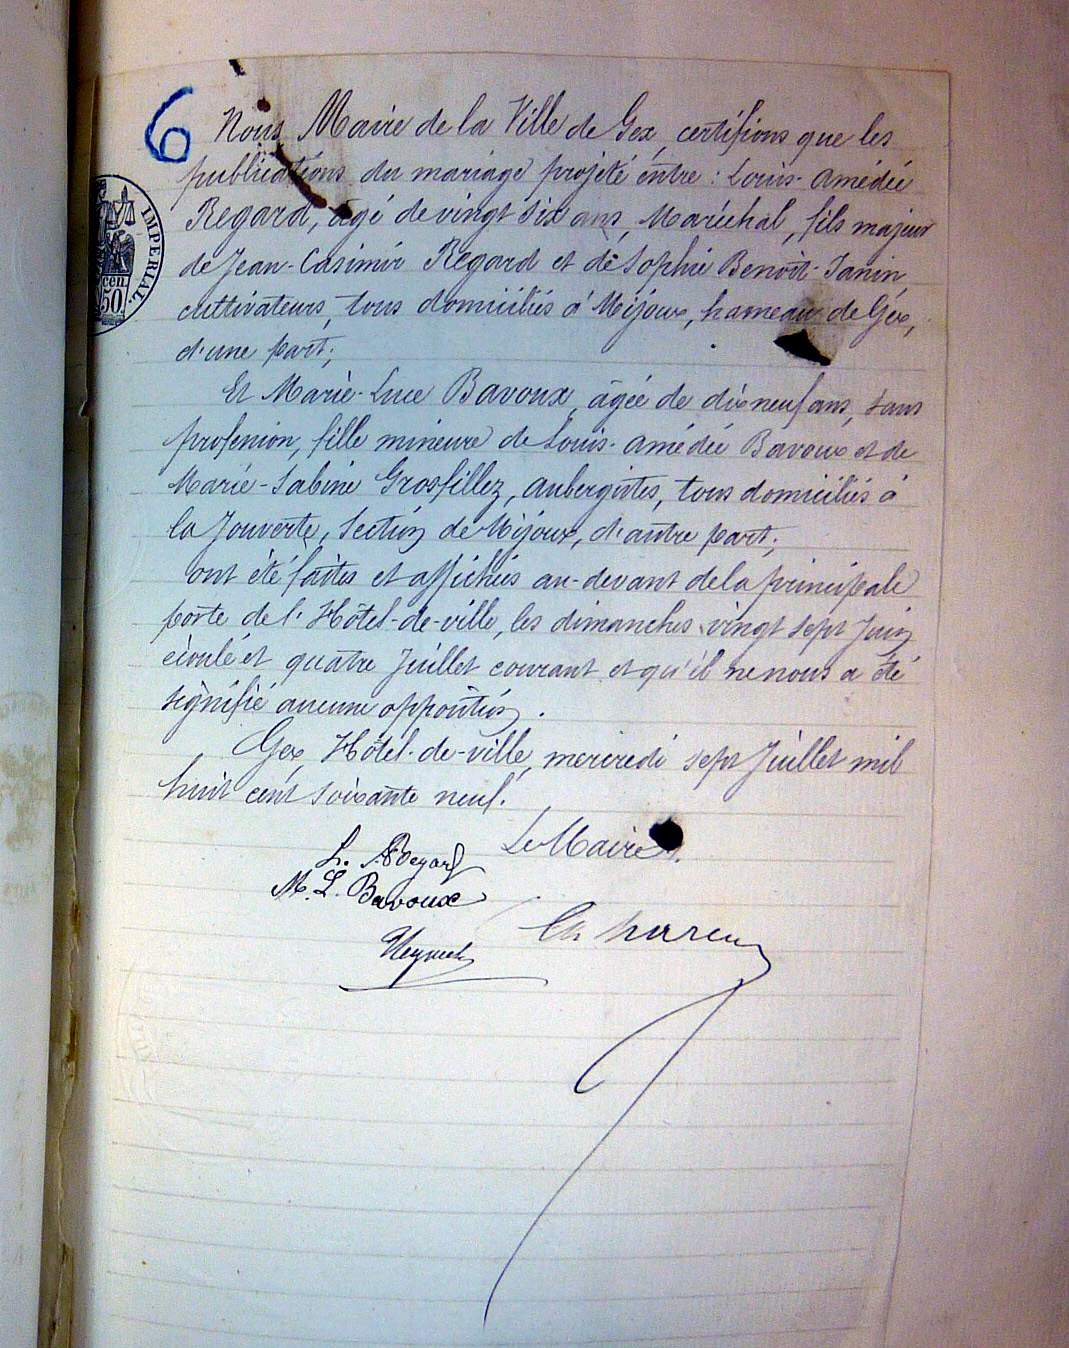 6
Nous Maire de la Ville de Gex, certifions que les
publications du mariage projeté entre : Louis-Amédée
Regard, âgé de vingt six ans, Maréchal, fils majeur
de Jean-Casimir Regard et de Sophie Benoit-Janin,
cultivateurs, tous domiciliés à Mijoux, hameau de Gex,
d'une part;
Et Marie-Luce Bavoux, âgée de dix neuf ans, sans
profession, fille mineure de Louis-Amédée Bavoux et de
Marie-Sabine Grosfillez, aubergistes, tous domiciliés à
la Jouverte, Section de Mijoux, d'autre part;
ont été faites et affichées au-devant de la principale
porte de l'Hôtel-de-ville, les dimanches vingt sept Juin
écoulé et quatre Juillet courant et qu'il ne nous a été
signifié aucune opposition.
Gex, Hôtel-de-ville, mercredi sept Juillet mil
huit cent soixante neuf.
Le Maire
L. A Regard
M. L. Bavoux
IMPERIAL.
cen
50